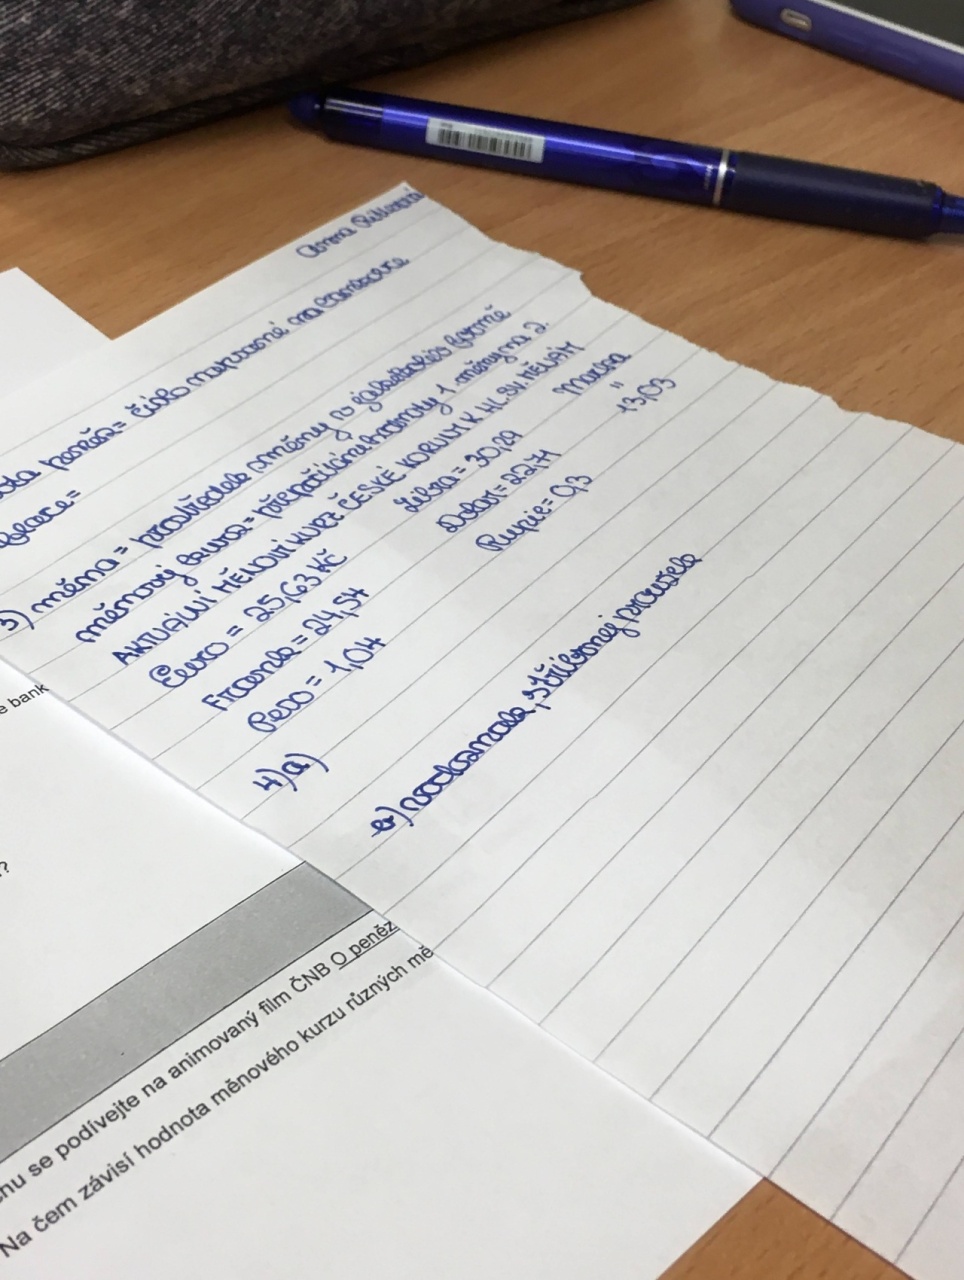 Anna
peněz = číslo napsané na bankovce
3) měna = prostředek směny v jakékoliv formě
měnový kurz = přepočítání hodnoty 1 měny na 2.
AKTUÁLNÍ MĚNOVÝ KURZ ČESKÉ KORUNY K HL. SV. MĚNÁM
Euro = 25,63 Kč Libra = 30,29 Marka
Frank = 24,54 Dolar = 22,71 " 13,03
Peso = 1,04 Rupie = 0,3
4) a)
e) provázek
e bank
?
chu se podívejte na animovaný film ČNB O peněz
Na čem závisí hodnota měnového kurzu různých mě